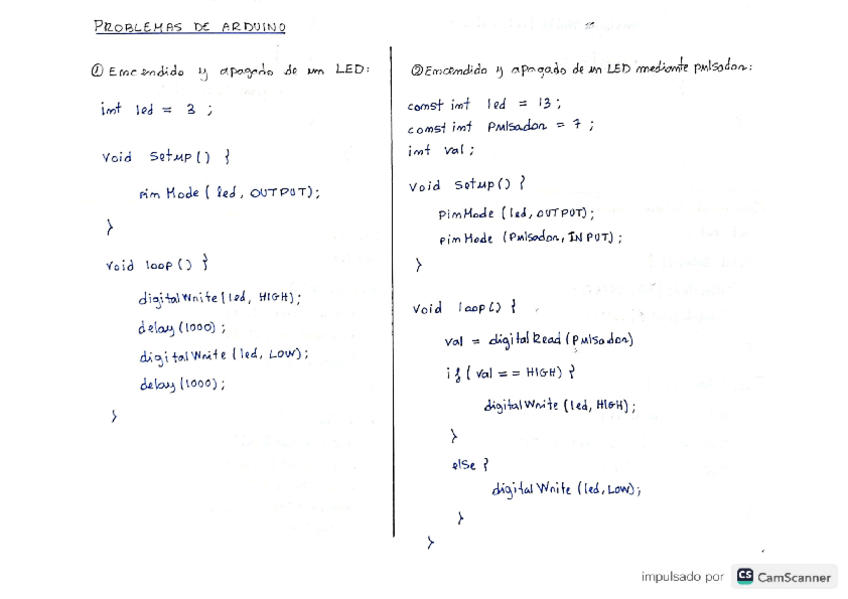 PROBLEMAS DE ARDUINO
① Encendido y apagado de un LED:
int led = 3 ;
void setup() {
pinMode ( led, OUTPUT);
}
void loop() }
digitalWrite(led, HIGH);
delay(1000);
digitalWrite (led, LOW);
delay(1000);
}
② Encendido y apagado de un LED mediante pulsador:
const int led = 13;
const int pulsador = 7 ;
int val ;
void setup() {
pinMode (led, OUTPUT);
pinMode (pulsador, INPUT);
}
void loop() {
val = digitalRead (pulsador)
if ( val == HIGH) {
digitalWrite (led, HIGH);
}
else {
digitalWrite (led, LOW);
}
}
impulsado por CS CamScanner